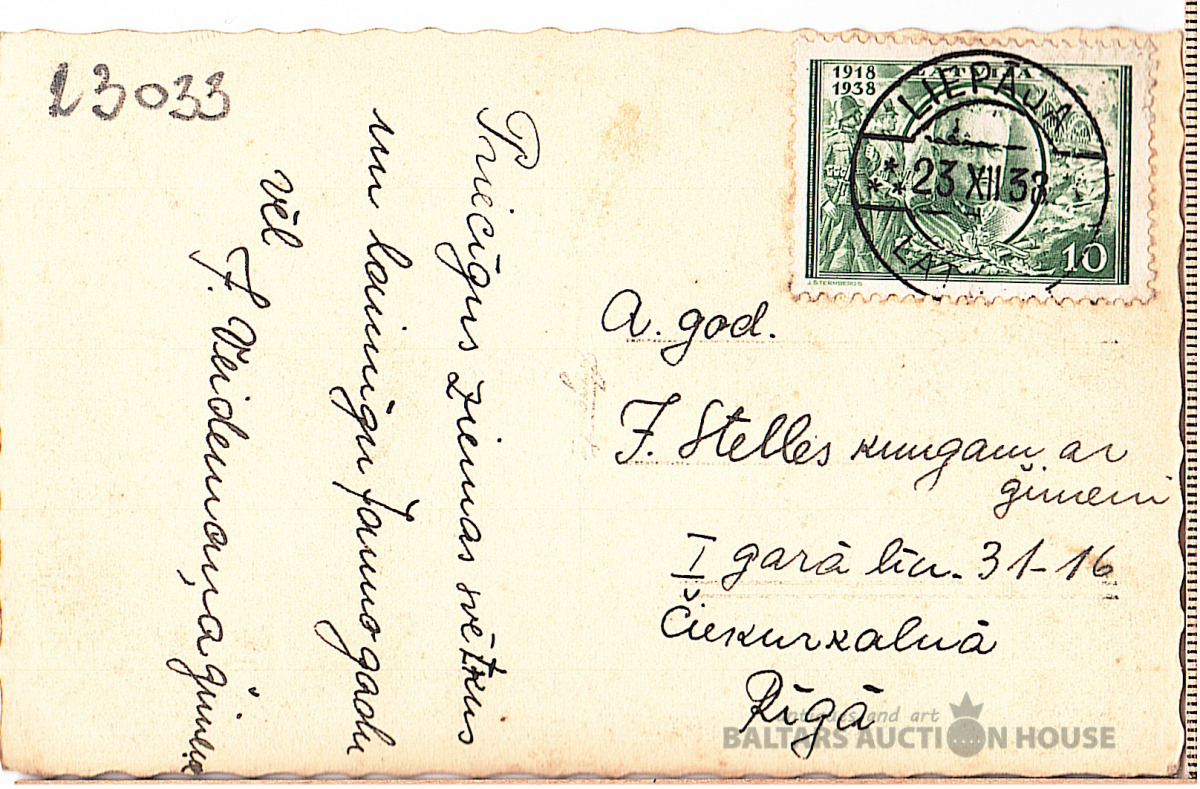 23033
Priecīgus Ziemas svētkus
un laimīgu Jauno gadu
vēl
J. Veidemaņa ģimene
1918
1938
LATVIJA
LIEPĀJA
23 XII 38
10
J. STERNBERGS
A. god.
J. Stelles kungam ar
ģimeni
I garā lin. 31-16
Čiekurkalnā
Rīgā
antiques and art
BALTARS AUCTION HOUSE